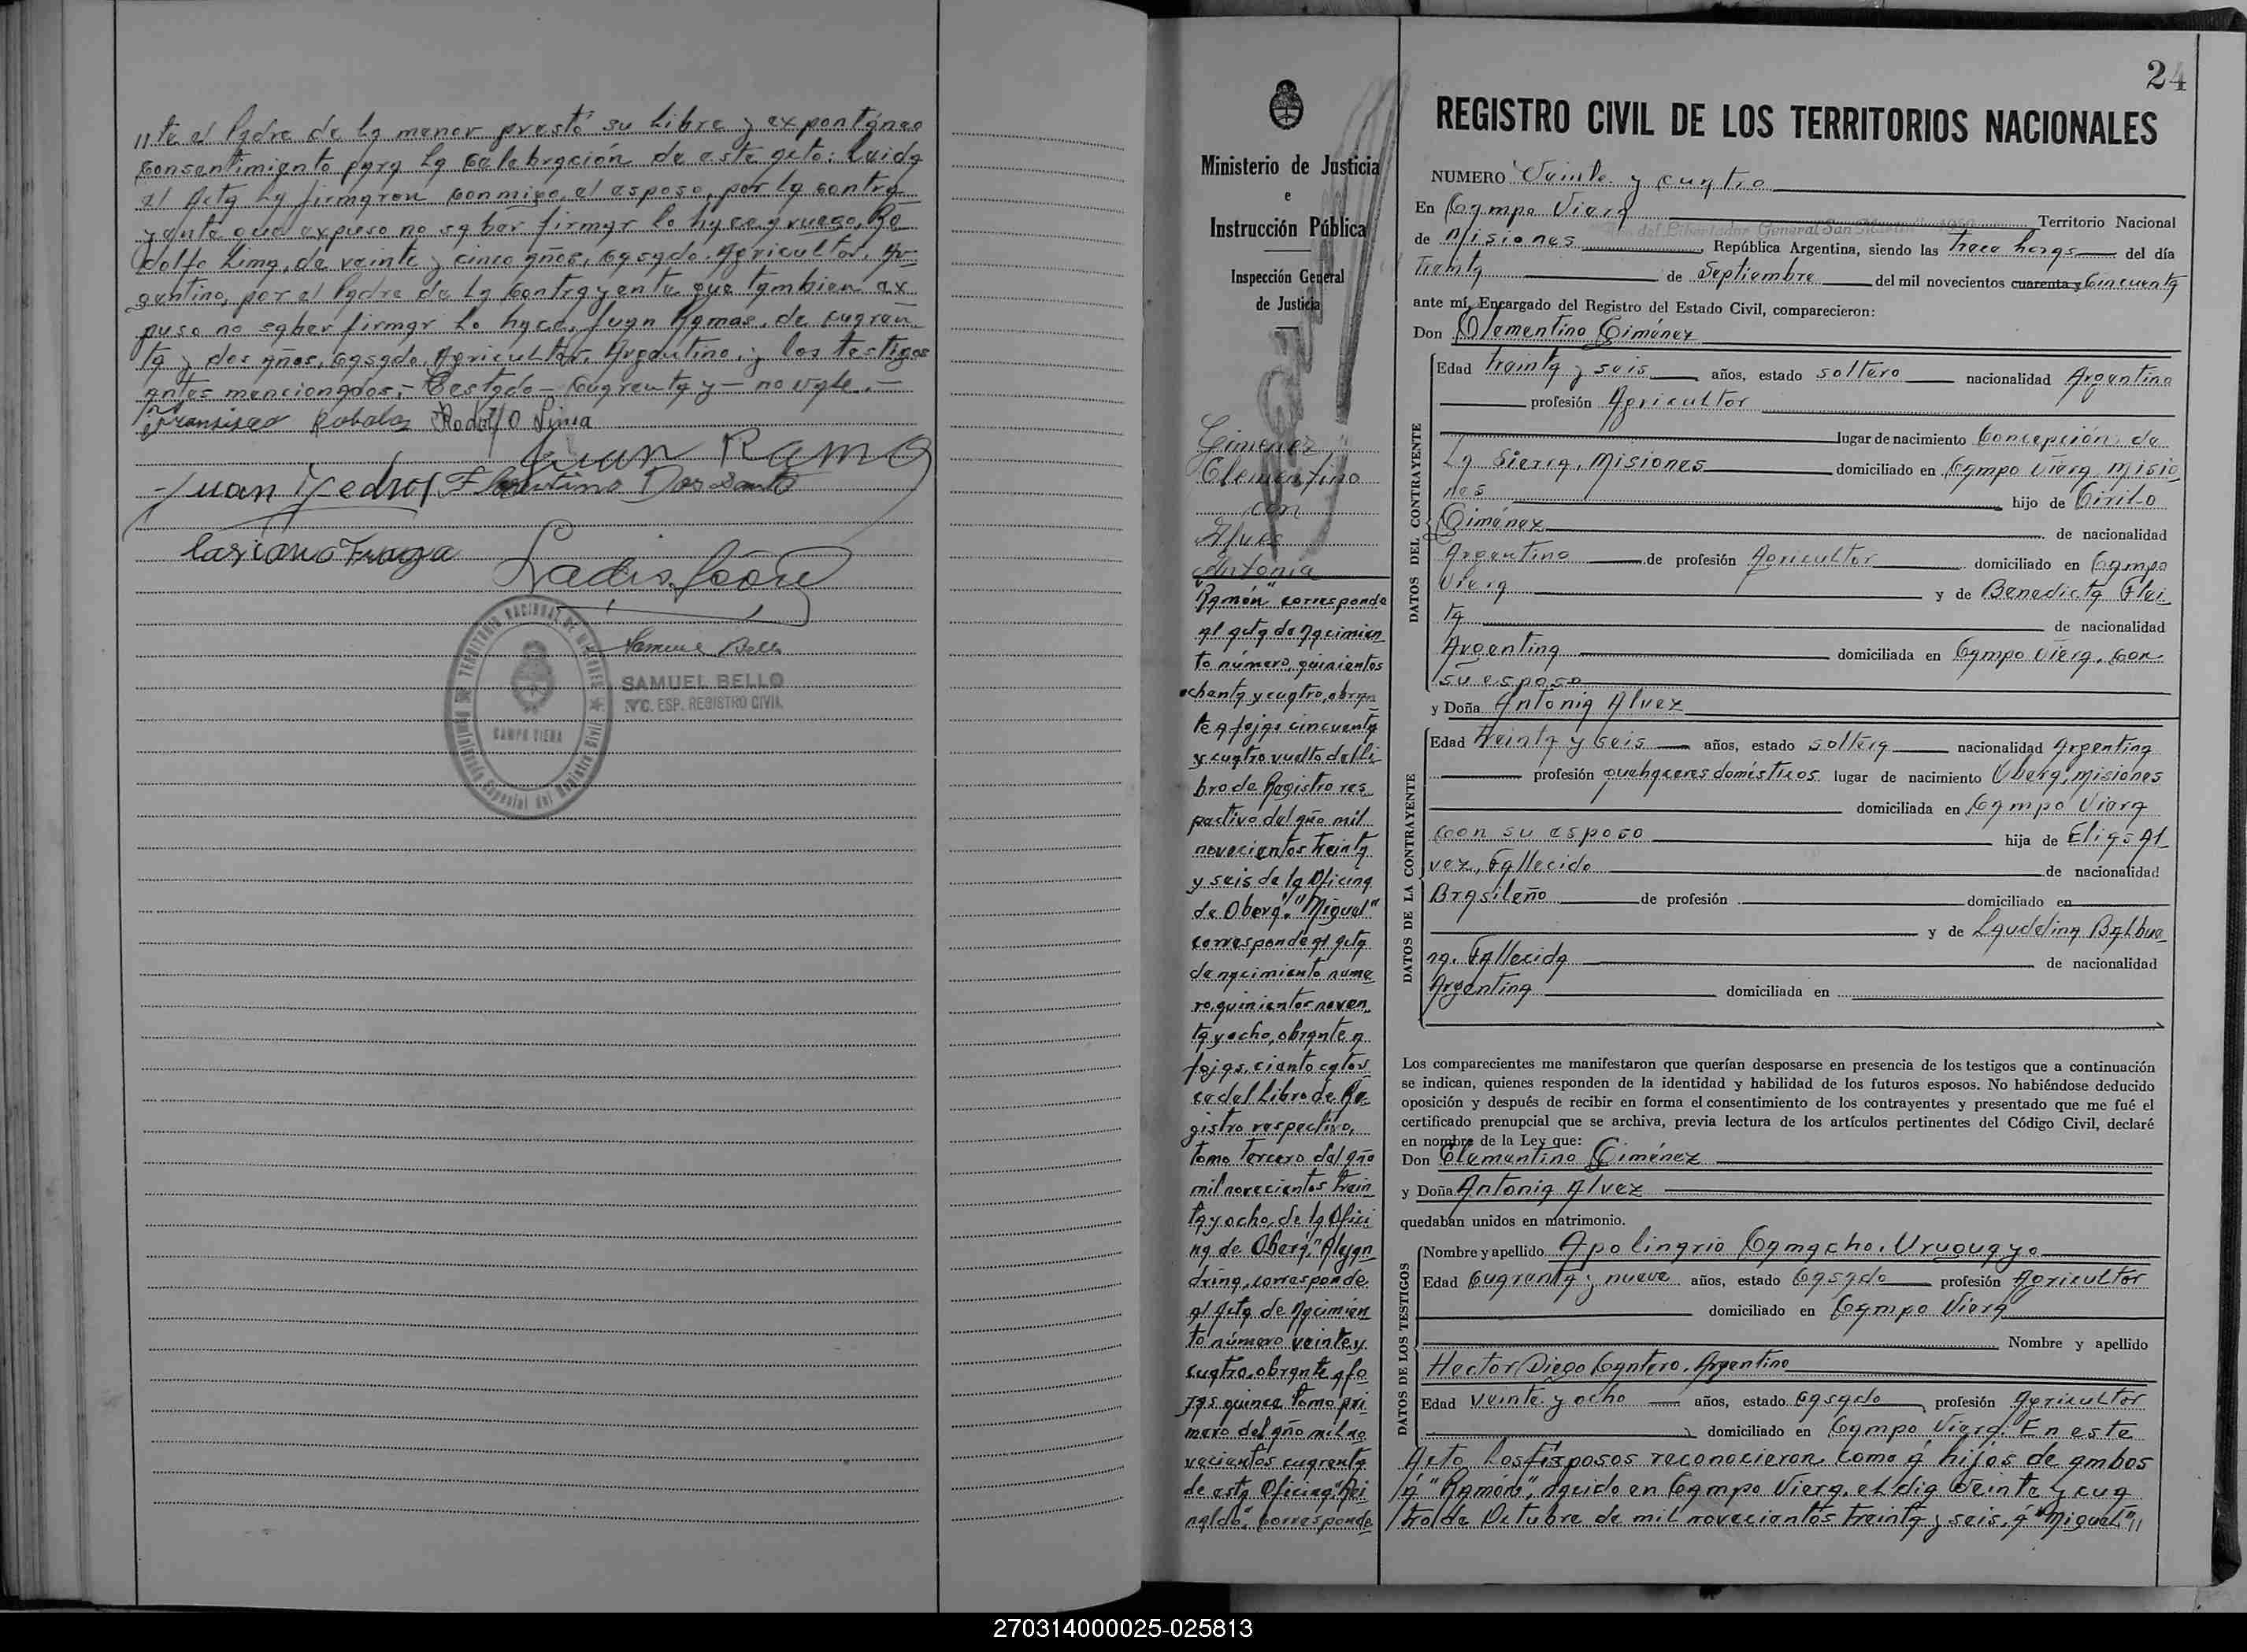 //te el Padre de la menor prestó su libre y expontáneo
consentimiento para la celebración de este acto: Leída
el Acta la firmaron conmigo, el esposo, por la contra-
yente que expuso no saber firmar lo hace a ruego, Ro
dolfo Lima, de veinte y cinco años, casado, Agricultor, Ar-
gentino, por el Padre de la contrayente que tambien ex-
puso no saber firmar lo hace, Juan Ramos, de cuaren-
ta y dos años, casado, Agricultor, Argentino, y los testigos
antes mencionados,- Testado - Cuarenta y - no vale.-
Rodolfo Lima
Juan Ramo
Juan Pedro Florentino Dos Santo
Casiano Fraga
Samuel Bello
SAMUEL BELLO
ESP. REGISTRO CIVIL
TERRITORIO NACIONAL DE MISIONES
CAMPO VIERA
Especial del Registro Civil
24
Ministerio de Justicia
e
Instrucción Pública
Inspección General
de Justicia
Gimenez
Clementino
con
Alves
Antonia
"Ramón" corresponde
al acta de nacimien
to número, quinientos
ochenta y cuatro, obran
te a fojas cincuenta
y cuatro vuelto del li
bro de Registro res
pectivo del año mil
novecientos treinta
y seis de la Oficina
de Oberá. "Miguel"
corresponde al acta
de nacimiento nume
ro, quinientos noven
ta y ocho, obrante a
fojas, ciento cator
ce del Libro de Re
gistro respectivo,
tomo tercero del año
mil novecientos trein
ta y ocho, de la Ofici
na de Oberá, "Alejan
drina, corresponde
al Acta de Nacimien
to número veinte y
cuatro, obrante a fo
jas quince tomo pri
mero del año mil no
vecientos cuarenta
de esta Oficina "Rei
naldo", corresponde
REGISTRO CIVIL DE LOS TERRITORIOS NACIONALES
NUMERO Veinte y cuatro
En Campo Viera Territorio Nacional
Año del Libertador General San Martín 1950
de Misiones, República Argentina, siendo las trece horas del día
Treinta de Septiembre del mil novecientos cuarenta y Cincuenta
ante mí, Encargado del Registro del Estado Civil, comparecieron:
Don Clementino Giménez
DATOS DEL CONTRAYENTE
Edad treinta y seis años, estado soltero nacionalidad Argentina
profesión Agricultor
lugar de nacimiento Concepción de
La Sierra, Misiones domiciliado en Campo Viera, Misio
nes hijo de Cirilo
Giménez de nacionalidad
Argentina de profesión Agricultor domiciliado en Campo
Viera y de Benedicta Flei
ta de nacionalidad
Argentina domiciliada en Campo Viera, con
su esposo
y Doña Antonia Alvez
DATOS DE LA CONTRAYENTE
Edad treinta y seis años, estado soltera nacionalidad Argentina
profesión quehaceres domésticos lugar de nacimiento Oberá, Misiones
domiciliada en Campo Viera
con su esposo hija de Elias Al
vez, Fallecido de nacionalidad
Brasileño de profesión domiciliado en
y de Laudelina Balbue
na, Fallecida de nacionalidad
Argentina domiciliada en
Los comparecientes me manifestaron que querían desposarse en presencia de los testigos que a continuación
se indican, quienes responden de la identidad y habilidad de los futuros esposos. No habiéndose deducido
oposición y después de recibir en forma el consentimiento de los contrayentes y presentado que me fué el
certificado prenupcial que se archiva, previa lectura de los artículos pertinentes del Código Civil, declaré
en nombre de la Ley que:
Don Clementino Giménez
y Doña Antonia Alvez
quedaban unidos en matrimonio.
DATOS DE LOS TESTIGOS
Nombre y apellido Apolinario Camacho, Uruguayo
Edad Cuarenta y nueve años, estado Casado profesión Agricultor
domiciliado en Campo Viera
Nombre y apellido
Hector Diego Cantero, Argentino
Edad veinte y ocho años, estado casado, profesión Agricultor
domiciliado en Campo Viera. En este
Acto los esposos reconocieron como á hijos de ambos
á "Ramón", nacido en Campo Viera, el dia Veinte y cua
tro de Octubre de mil novecientos treinta y seis, á "Miguel"//
270314000025-025813